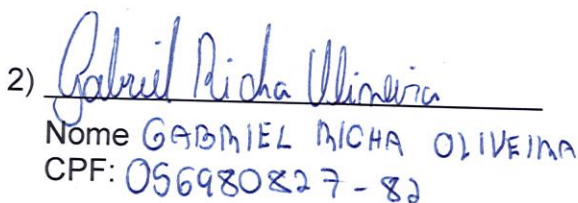 2) Gabriel Richa Oliveira
Nome GABRIEL RICHA OLIVEIRA
CPF: 056980827-82